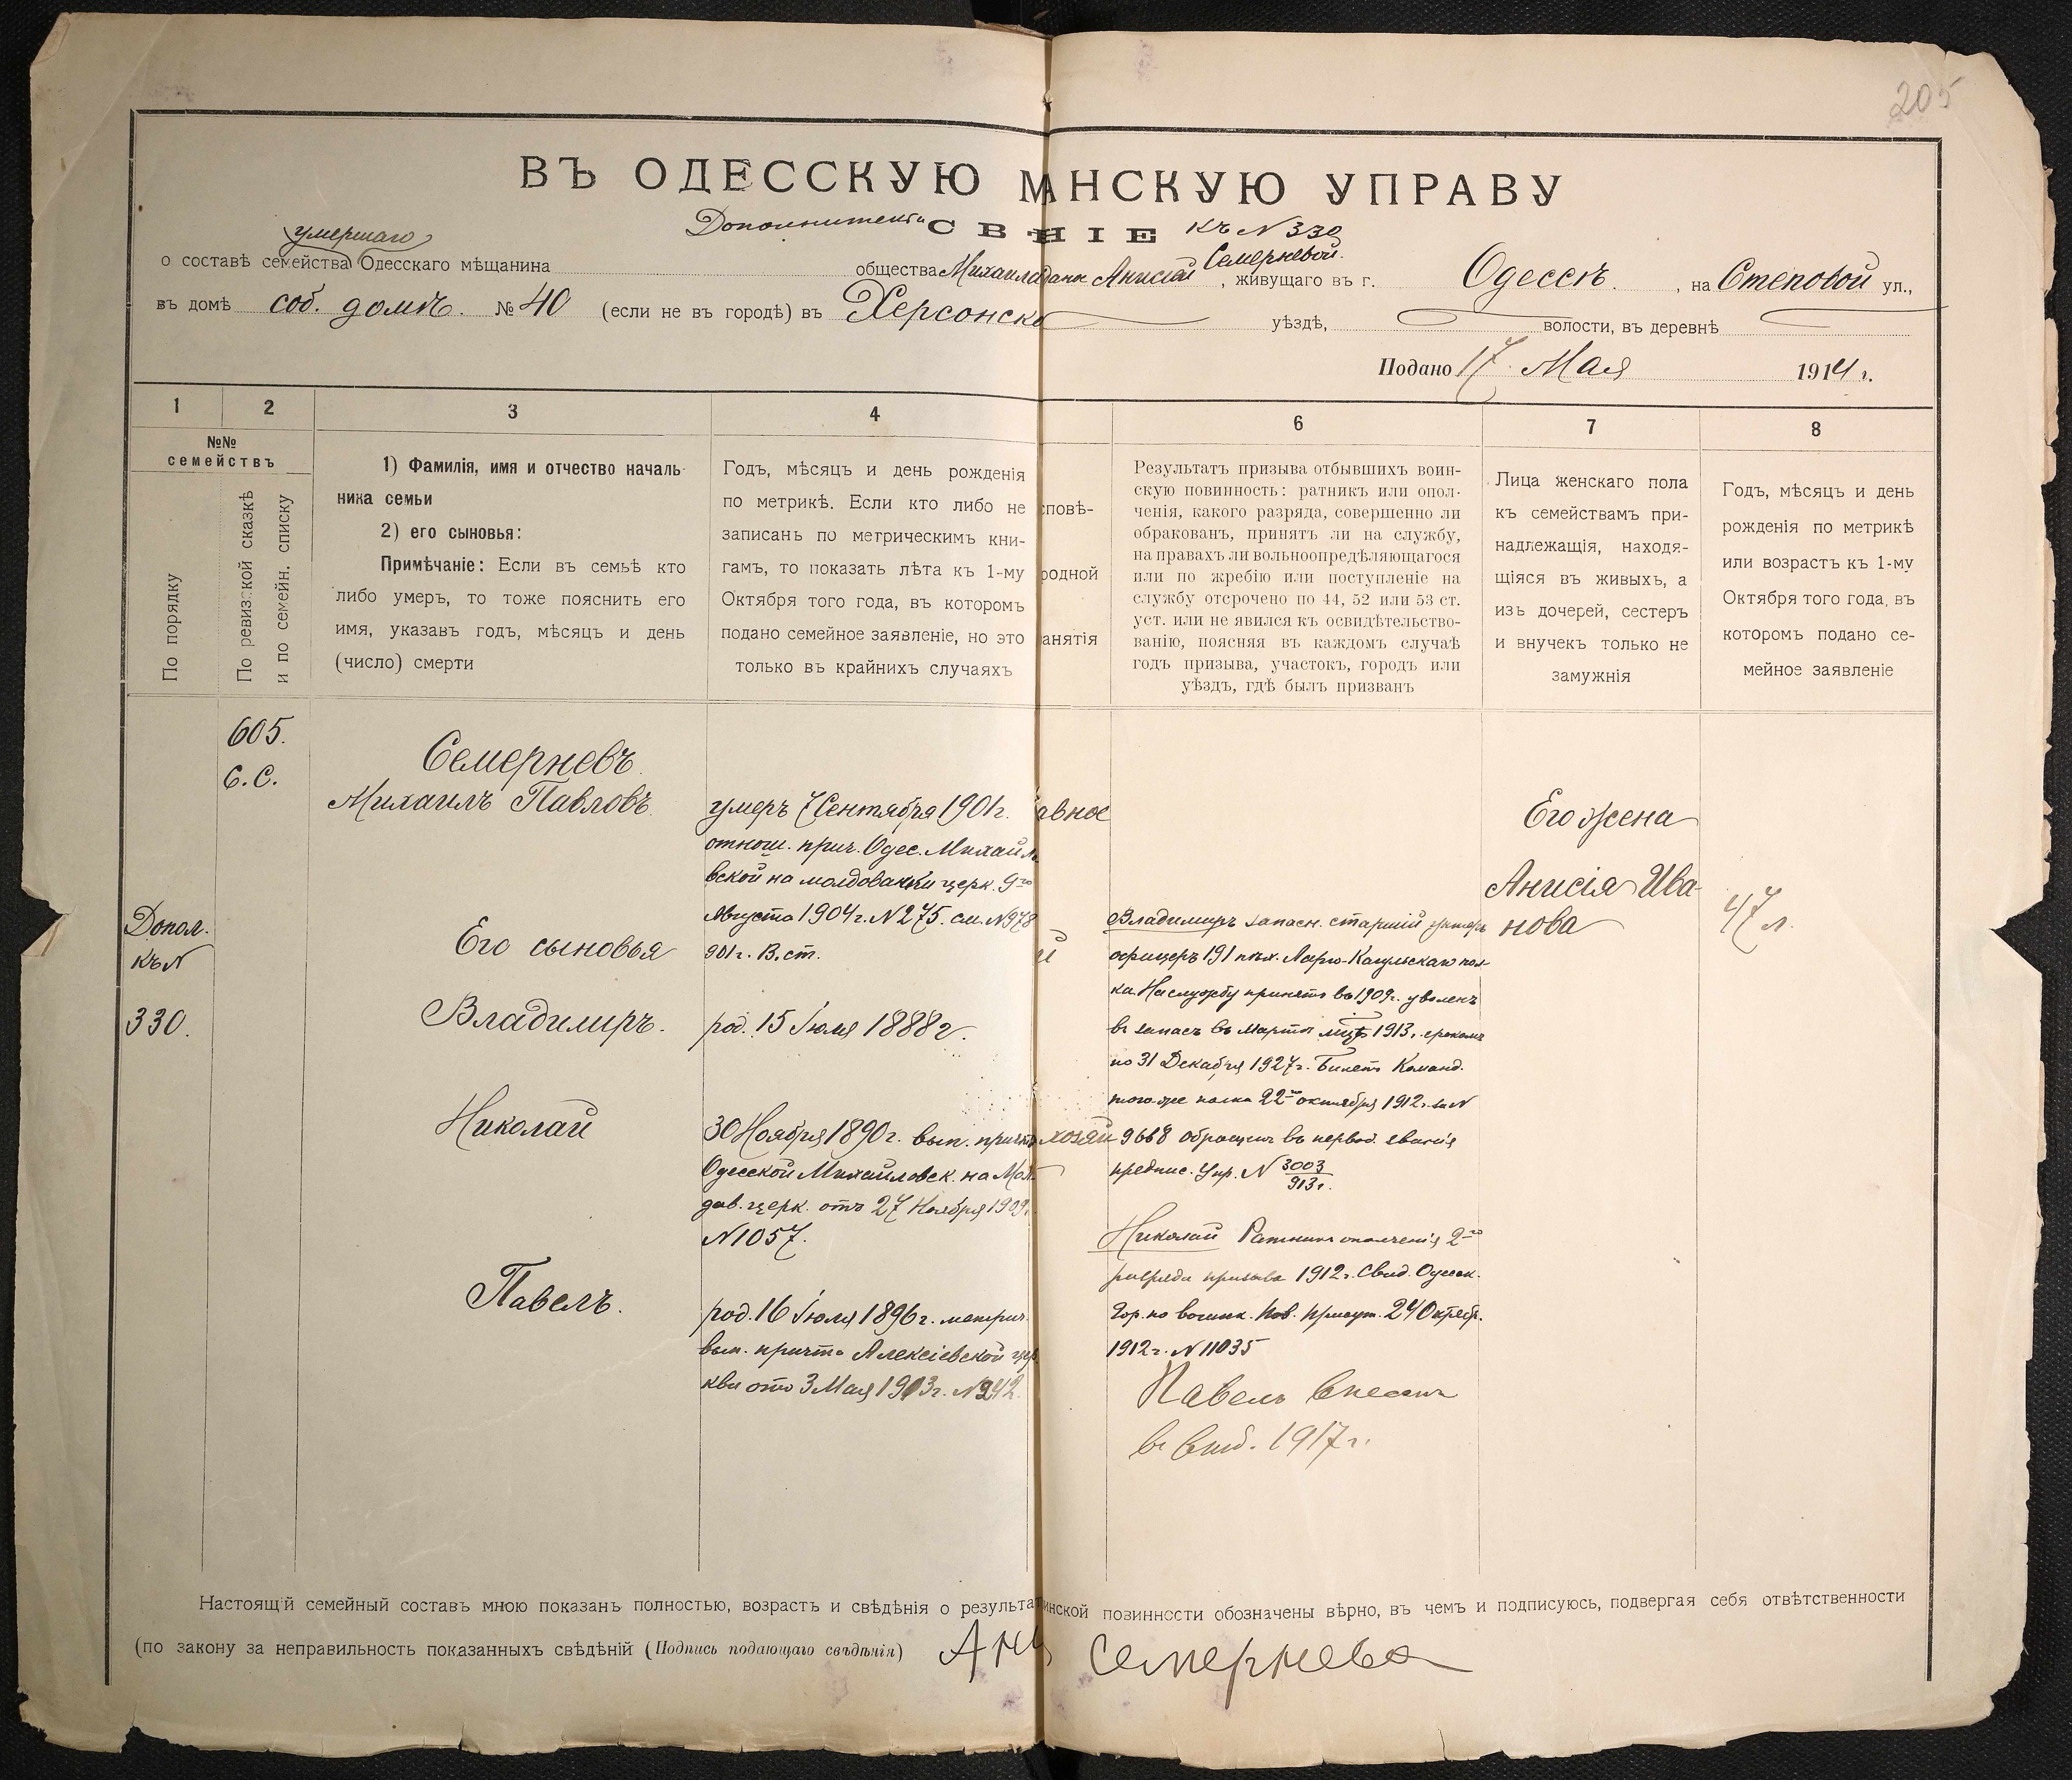 205
ВЪ ОДЕССКУЮ М НСКУЮ УПРАВУ
Дополнительн СВ НІЕ къ N 330
умершаго
о составѣ семейства Одесскаго мѣщанина общества Михаила Анисіи Семерневой. , живущаго въ г. Одессѣ. , на Степовой ул.,
въ домѣ соб. домѣ. № 40 (если не въ городѣ) въ Херсонско уѣздѣ, волости, въ деревнѣ
Подано 17 Мая 1914 г.
1 2 3 4 6 7 8
№№
семействъ
По порядку
По ревизской сказкѣ
и по семейн. списку
1) Фамилія, имя и отчество началь-
ника семьи
2) его сыновья:
Примѣчаніе: Если въ семьѣ кто
либо умеръ, то тоже пояснить его
имя, указавъ годъ, мѣсяцъ и день
(число) смерти
Годъ, мѣсяцъ и день рожденія
по метрикѣ. Если кто либо не
записанъ по метрическимъ кни-
гамъ, то показать лѣта къ 1-му
Октября того года, въ которомъ
подано семейное заявленіе, но это
только въ крайнихъ случаяхъ
сповѣ-
родной
анятія
Результатъ призыва отбывшихъ воин-
скую повинность: ратникъ или опол-
ченія, какого разряда, совершенно ли
обракованъ, принятъ ли на службу,
на правахъ ли вольноопредѣляющагося
или по жребію или поступленіе на
службу отсрочено по 44, 52 или 53 ст.
уст. или не явился къ освидѣтельство-
ванію, поясняя въ каждомъ случаѣ
годъ призыва, участокъ, городъ или
уѣздъ, гдѣ былъ призванъ
Лица женскаго пола
къ семействамъ при-
надлежащія, находя-
щіяся въ живыхъ, а
изъ дочерей, сестеръ
и внучекъ только не
замужнія
Годъ, мѣсяцъ и день
рожденія по метрикѣ
или возрастъ къ 1-му
Октября того года, въ
которомъ подано се-
мейное заявленіе
Допол.
къ N
330.
605.
С.С.
Семерневъ
Михаилъ Павловъ
Его сыновья
Владимиръ.
Николай
Павелъ.
умеръ 7 Сентября 1901 г.
отнош. прич. Одес. Михайл
вской на молдованки церк. 9го
Августа 1904 г. N 275. см. N 978
901 г. В. ст.
род. 15 Іюля 1888 г.
30 Ноября 1890 г. вып. причта
Одесской Михайловск. на Мол-
дав. церк. отъ 27 Ноября 1909 г.
N 1057.
род. 16 Іюля 1896 г. метрич.
вып. причта Алексіевской цер
кви отъ 3 Мая 1913 г. N 242.
авное
й
хозяй
Владимиръ запасн. старшій унтеръ
офицеръ 191 пѣх. Ларго-Кагульскаго пол-
ка. На службу принятъ въ 1909 г. уволенъ
въ запасъ въ Мартѣ 1913 г. срокомъ
по 31 Декабря 1927 г. Билетъ Команд.
того-же полка 22го октября 1912 г. за N
9668 обращенъ въ первоб. званія
предпис. Упр. N 3003
913 г.
Николай Ратникъ ополченія 2го
разряда призыва 1912 г. Свид. Одесск.
Гор. по воинск. пов. присут. 24 Октяб.
1912 г. N 11035
Павелъ внесенъ
въ 1917 г.
Его жена
Анисія Ива-
нова
47 л.
Настоящій семейный составъ мною показанъ полностью, возрастъ и свѣдѣнія о результат инской повинности обозначены вѣрно, въ чемъ и подписуюсь, подвергая себя отвѣтственности
(по закону за неправильность показанныхъ свѣдѣній (Подпись подающаго свѣдѣнія) Ани Семернева